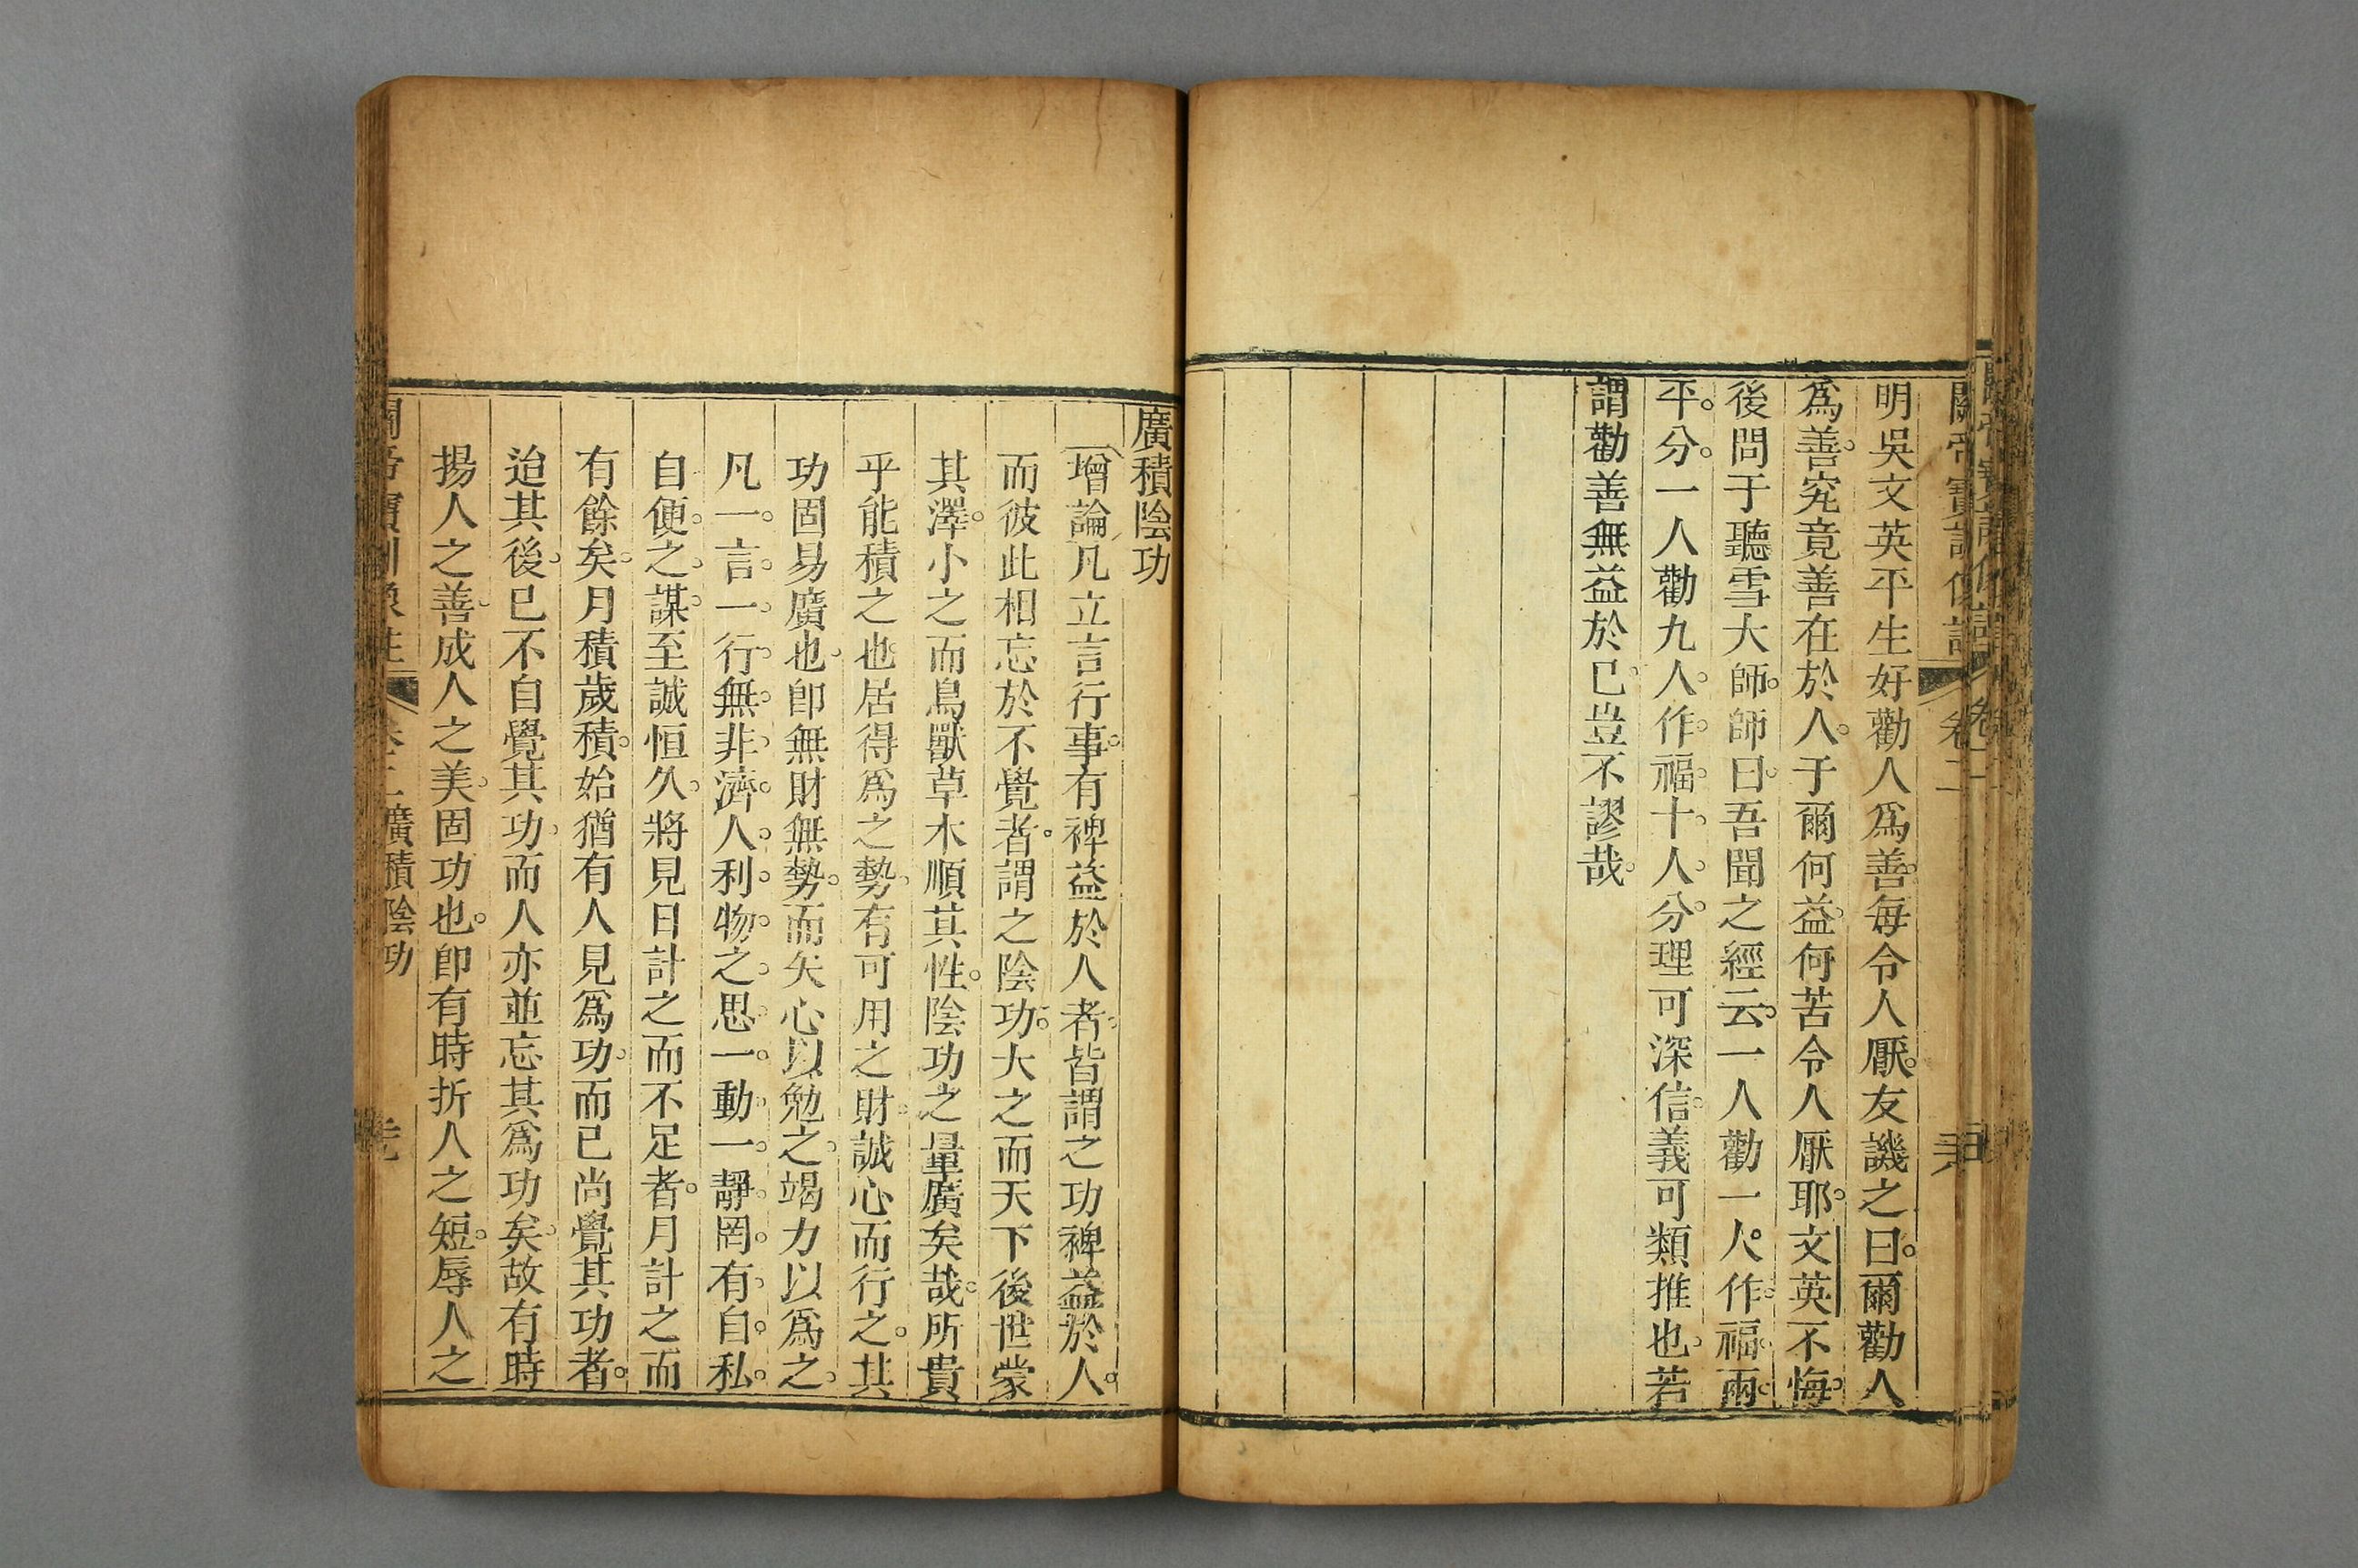 明吳文英平生好勸人爲善每令人厭友譏之曰爾勸人
爲善究竟善在於人于爾何益何苦令人厭耶文英不悔
後問于聽雪大師師曰吾聞之經云一人勸一人作福兩
平分一人勸九人作福十人分理可深信義可類推也若
謂勸善無益於已豈不謬哉
廣積陰功
增論凡立言行事有裨益於人者皆謂之功裨益於人
而彼此相忘於不覺者謂之陰功大之而天下後世蒙
其澤小之而鳥獸草木順其性陰功之量廣矣哉所貴
乎能積之也居得爲之勢有可用之財誠心而行之其
功固易廣也卽無財無勢而矢心以勉之竭力以爲之
凡一言一行無非濟人利物之思一動一靜罔有自私
自便之謀至誠恒久將見日計之而不足者月計之而
有餘矣月積歲積始猶有人見爲功而已尚覺其功者
迨其後已不自覺其功而人亦並忘其爲功矣故有時
揚人之善成人之美固功也卽有時折人之短辱人之
廣積陰功